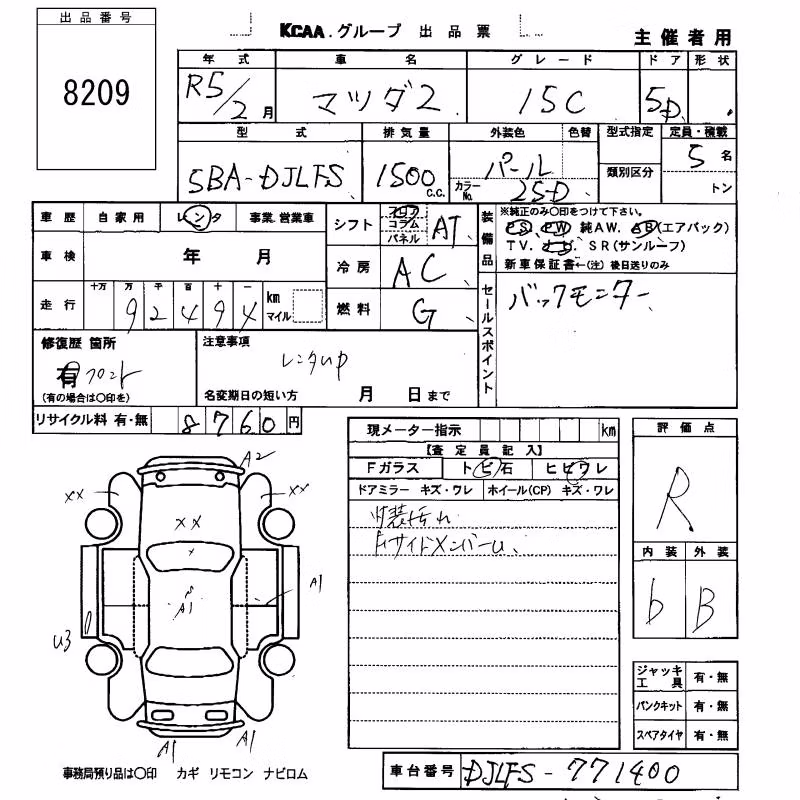 出品番号
8209
KCAA.グループ 出品票
主催者用
年式 車名 グレード ドア 形状
R5/2月 マツダ2 15C 5D
型式 排気量 外装色 色替 型式指定 定員・積載
類別区分
5BA-DJLFS 1500c.c. パール カラーNo. 25D 5名
トン
車歴 自家用 レンタ 事業.営業車
車検 年 月
走行 十万 万 千 百 十 一
92494 km マイル
シフト フロア コラム パネル AT
冷房 AC
燃料 G
装備品
※純正のみ〇印をつけて下さい。
PS PW 純AW. AB(エアバック)
TV. ナビ SR(サンルーフ)
新車保証書←(注) 後日送りのみ
セールスポイント
バックモニター
修復歴 箇所
有 フロント
(有の場合は〇印を)
注意事項
レンタUP
名変期日の短い方 月 日まで
リサイクル料 有・無 8760円
現メーター指示 km
【査定員記入】
Fガラス トビ石 ヒビワレ
ドアミラー キズ・ワレ ホイール(CP) キズ・ワレ
内装汚れ
FサイドメンバーU
評価点
R
内装 外装
b B
ジャッキ工具 有・無
パンクキット 有・無
スペアタイヤ 有・無
A2
XX XX
XX
A1
A1
U3
A1 A1
事務局預り品は〇印 カギ リモコン ナビロム
車台番号 DJLFS-771400